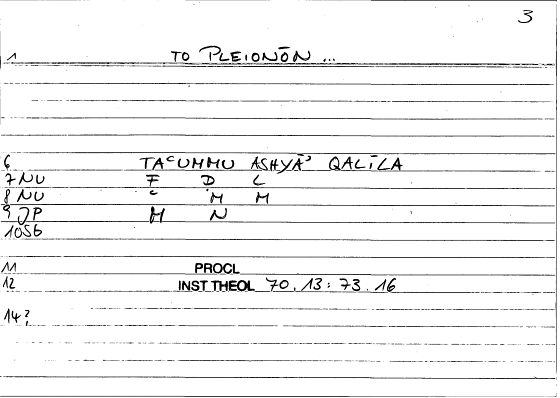 3
1 TO PLEIONŌN ...
6 TAʿUMMU ASHYĀʾ QALĪLA
7 NU F D L
8 NU ʿ M M
9 JP M N
10 SB
11 PROCL
12 INST THEOL 70.13: 73.16
14?